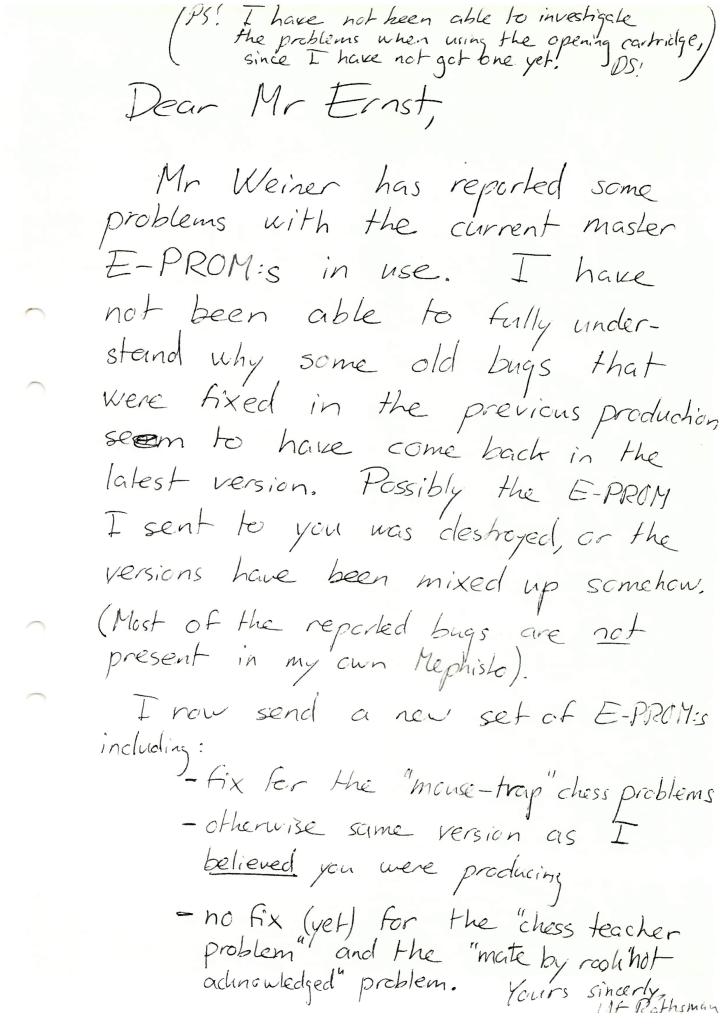 (PS! I have not been able to investigate
the problems when using the opening cartridge,
since I have not got one yet! DS!)
Dear Mr Ernst,
Mr Weiner has reported some
problems with the current master
E-PROM:s in use. I have
not been able to fully under-
stand why some old bugs that
were fixed in the previous production
seem to have come back in the
latest version. Possibly the E-PROM
I sent to you was destroyed, or the
versions have been mixed up somehow.
(Most of the reported bugs are not
present in my own Mephisto).
I now send a new set of E-PROM:s
including:
- fix for the "mouse-trap" chess problems
- otherwise same version as I
believed you were producing
- no fix (yet) for the "chess teacher
problem" and the "mate by rook not
acknowledged" problem.
Yours sincerely,
Ulf Rathsman